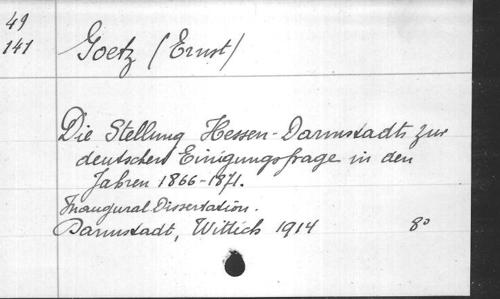 49
141
Goetz (Ernst)
Die Stellung Hessen-Darmstadts zur
deutschen Einigungsfrage in den
Jahren 1866-1871.
Inaugural Dissertation.
Darmstadt, Wittich 1914 8°